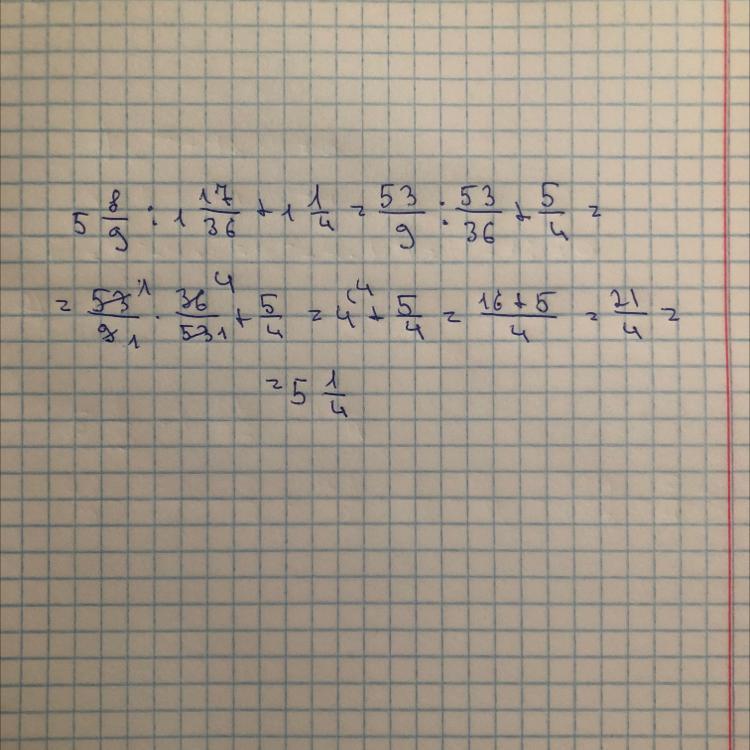 5 8/9 : 1 17/36 + 1 1/4 = 53/9 : 53/36 + 5/4 =
= 53 1/9 1 · 36 4/53 1 + 5/4 = 4 (4 + 5/4 = 16+5/4 = 21/4 =
= 5 1/4